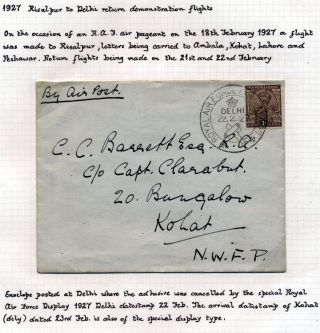 1927 Risalpur to Delhi return demonstration flights
On the occasion of an R.A.F. air pageant on the 18th February 1927 a flight
was made to Risalpur, letters being carried to Ambala, Kohat, Lahore and
Peshawar. Return flights being made on the 21st and 22nd February
By Air Post.
ROYAL AIR FORCE
DELHI
22.2.2
C. C. Barrett Esq. R.A.
c/o Capt. Clarabut.
20. Bungalow
Kohat
N.W.F.P.
Envelope posted at Delhi where the adhesive was cancelled by the special Royal
Air Force Display 1927 Delhi datestamp 22 Feb. The arrival datestamp of Kohat
(dly) dated 23rd Feb. is also of the special display type.